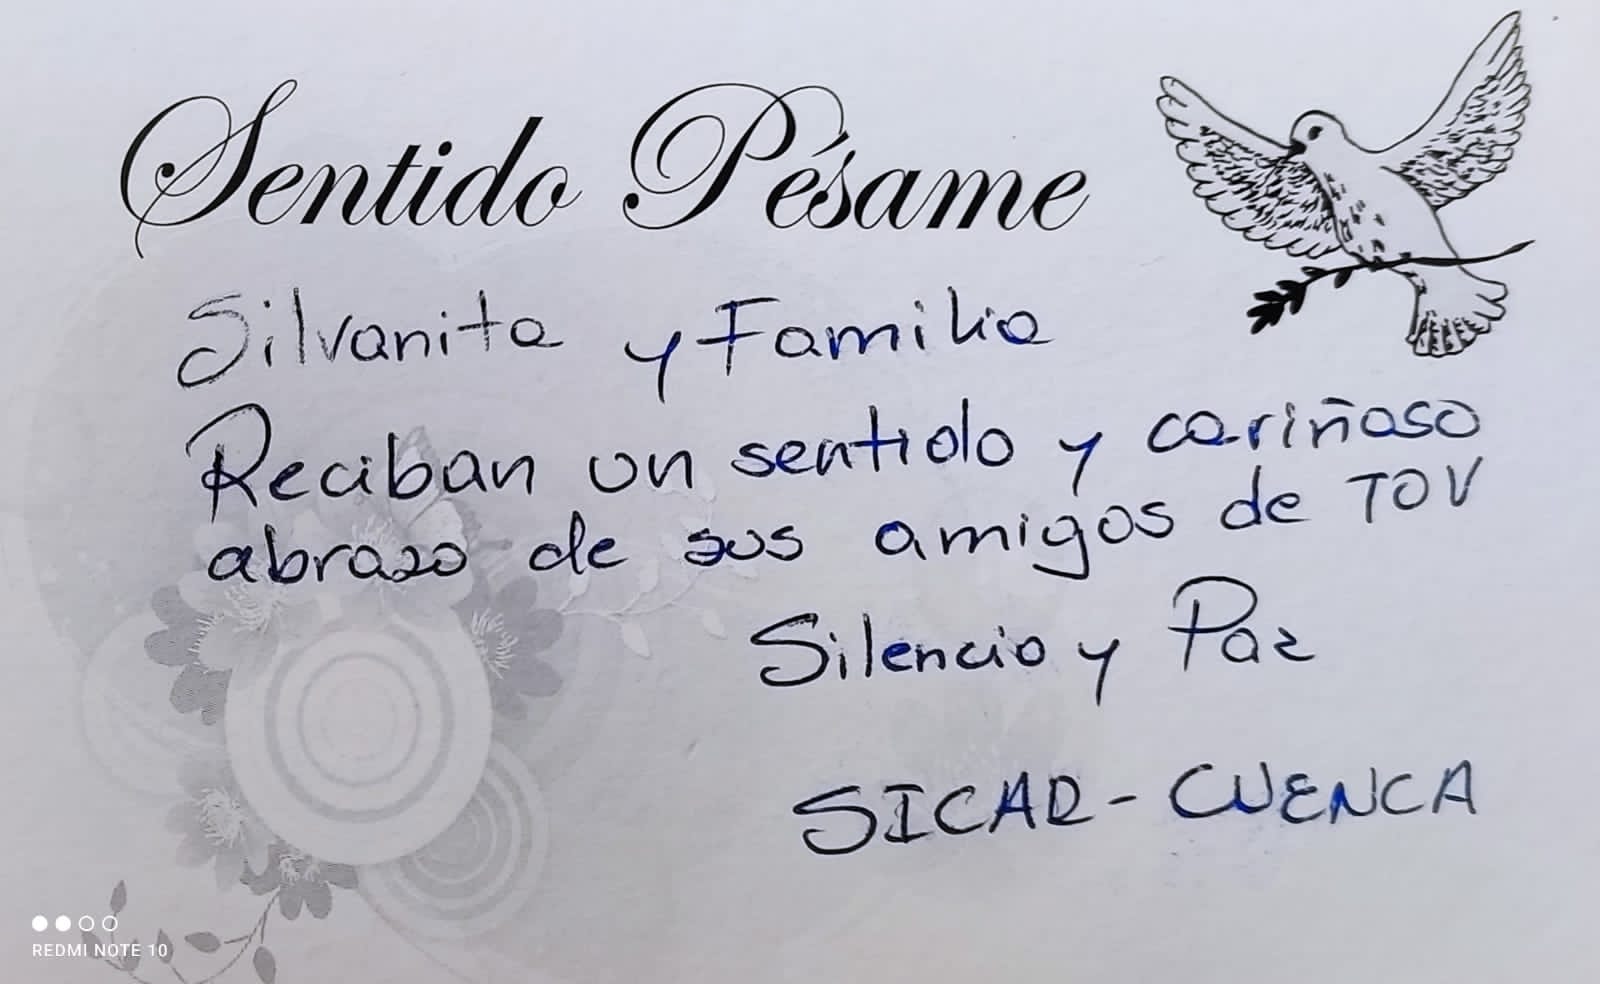 Sentido Pésame
Silvanita y Familia
Reciban un sentido y cariñoso
abrazo de sus amigos de TOV
Silencio y Paz
SICAR - CUENCA
REDMI NOTE 10